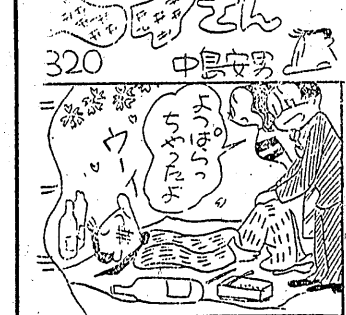 さん
320
中島安男
よっぱらっ
ちゃったよ
ウーイ